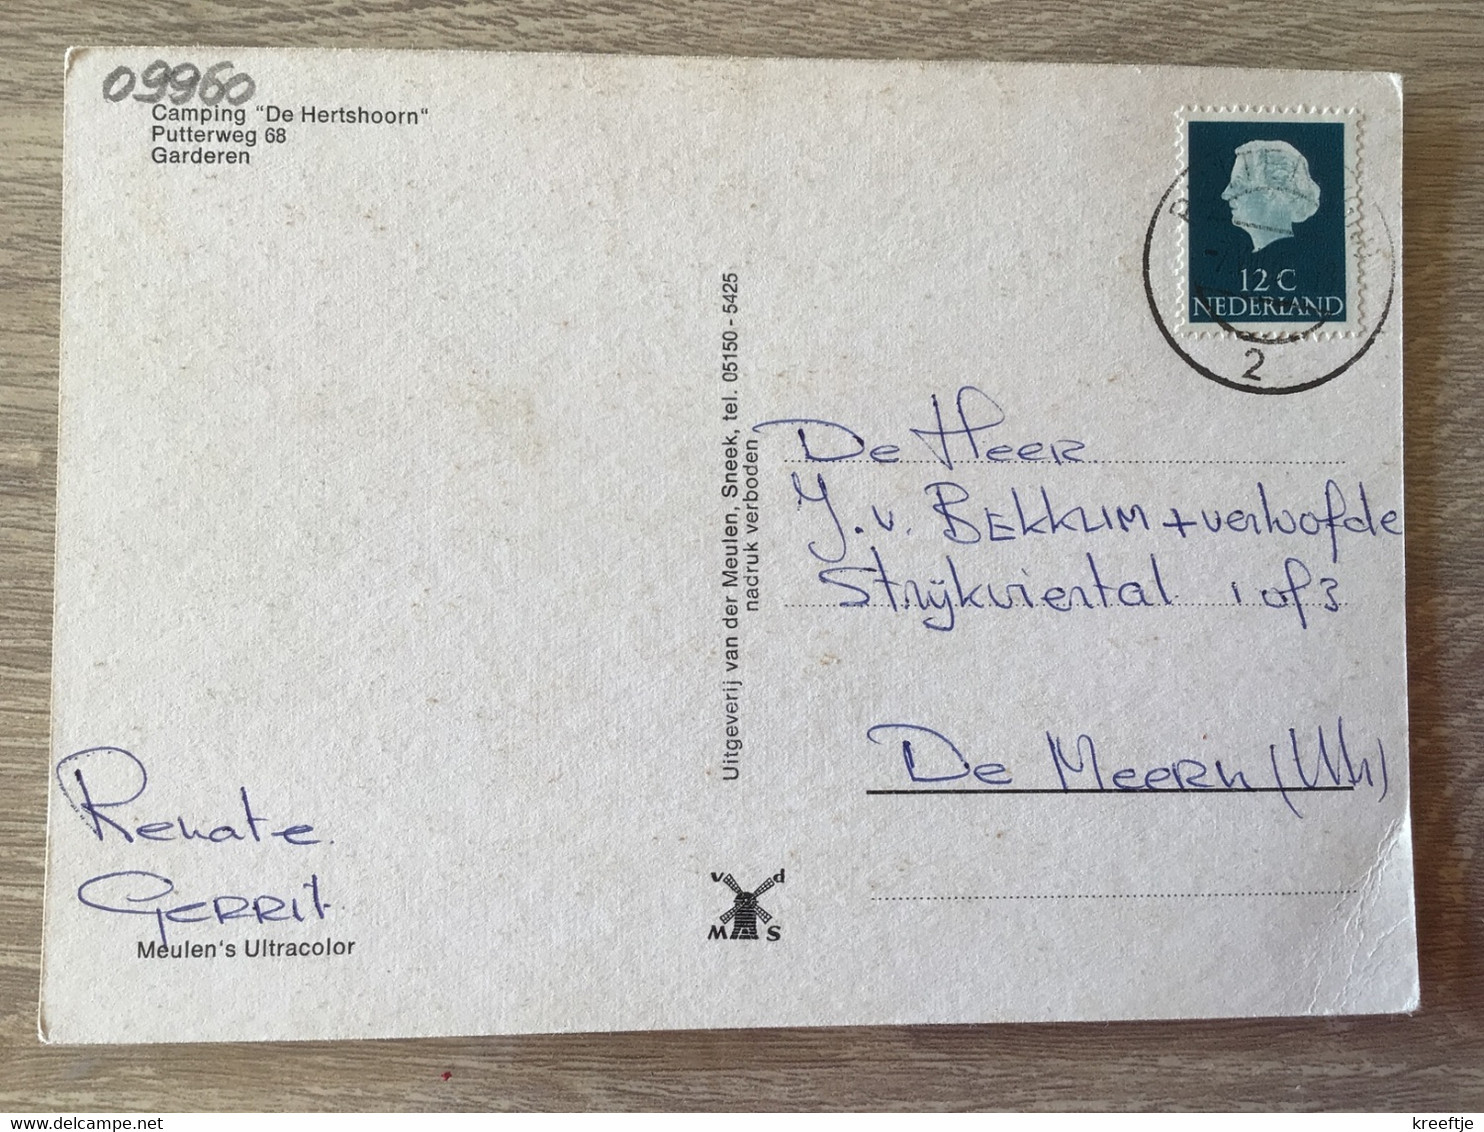 09960
Camping "De Hertshoorn"
Putterweg 68
Garderen
12 C
NEDERLAND
2
Uitgeverij van der Meulen, Sneek, tel. 05150 - 5425
nadruk verboden
De Heer
J. v. BEKKUM + verloofde
Strijkviertal 1 of 3
De Meern (Utr)
Renate
GERRIt
Meulen's Ultracolor
v d
M S
kreeftje